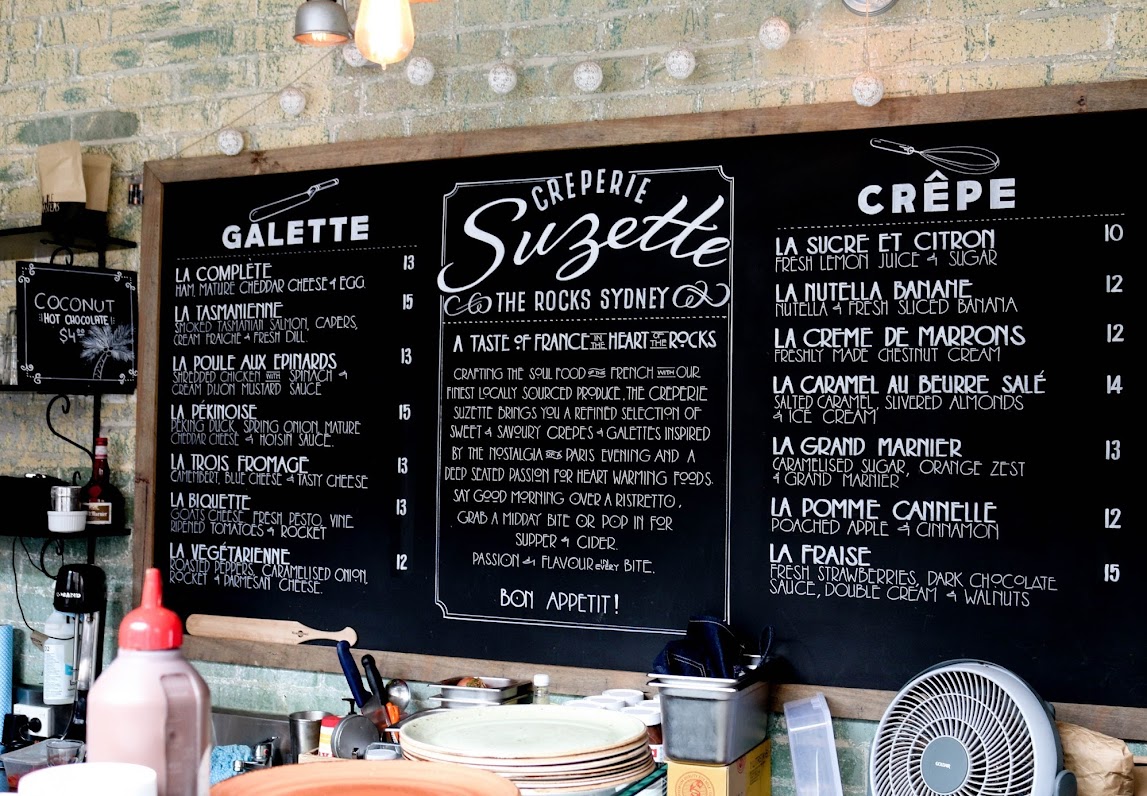 COCONUT
HOT CHOCOLATE
$4
GALETTE
LA COMPLÈTE 13
HAM, MATURE CHEDDAR CHEESE & EGG.
LA TASMANIENNE 15
SMOKED TASMANIAN SALMON, CAPERS,
CREAM FRAICHE & FRESH DILL.
LA POULE AUX EPINARDS 13
SHREDDED CHICKEN WITH SPINACH &
CREAM DIJON MUSTARD SAUCE
LA PÉKINOISE 15
PEKING DUCK, SPRING ONION, MATURE
CHEDDAR CHEESE & HOISIN SAUCE.
LA TROIS FROMAGE 13
CAMEMBERT, BLUE CHEESE & TASTY CHEESE
LA BIQUETTE 13
GOATS CHEESE, FRESH PESTO, VINE
RIPENED TOMATOES & ROCKET
LA VEGÉTARIENNE 12
ROASTED PEPPERS, CARAMELISED ONION,
ROCKET & PARMESAN CHEESE.
CREPERIE
Suzette
THE ROCKS SYDNEY
A TASTE OF FRANCE IN THE HEART OF THE ROCKS
CRAFTING THE SOUL FOOD OF THE FRENCH WITH OUR
FINEST LOCALLY SOURCED PRODUCE, THE CREPERIE
SUZETTE BRINGS YOU A REFINED SELECTION OF
SWEET & SAVOURY CREPES & GALETTES INSPIRED
BY THE NOSTALGIA OF A PARIS EVENING AND A
DEEP SEATED PASSION FOR HEART WARMING FOODS.
SAY GOOD MORNING OVER A RISTRETTO,
GRAB A MIDDAY BITE OR POP IN FOR
SUPPER & CIDER.
PASSION & FLAVOUR IN EVERY BITE.
BON APPETIT!
CRÊPE
LA SUCRE ET CITRON 10
FRESH LEMON JUICE & SUGAR
LA NUTELLA BANANE 12
NUTELLA & FRESH SLICED BANANA
LA CREME DE MARRONS 12
FRESHLY MADE CHESTNUT CREAM
LA CARAMEL AU BEURRE SALÉ 14
SALTED CARAMEL, SLIVERED ALMONDS
& ICE CREAM
LA GRAND MARNIER 13
CARAMELISED SUGAR, ORANGE ZEST
& GRAND MARNIER
LA POMME CANNELLE 12
POACHED APPLE & CINNAMON
LA FRAISE 15
FRESH STRAWBERRIES, DARK CHOCOLATE
SAUCE, DOUBLE CREAM & WALNUTS